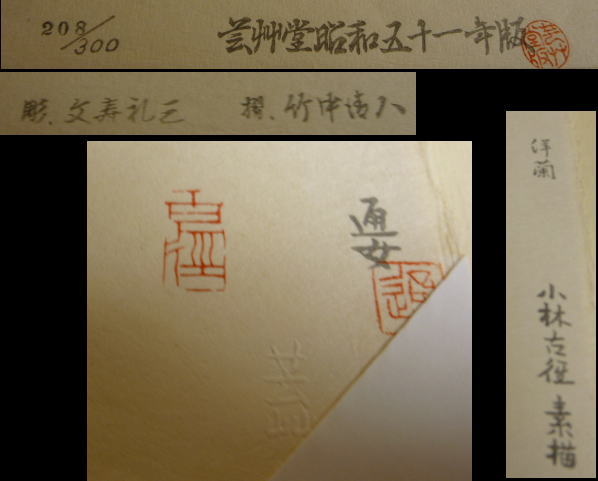 208/300 芸艸堂昭和五十一年版
彫、文寿礼三 摺、竹中清八
古径
通女
芸艸
洋蘭
小林古径 素描